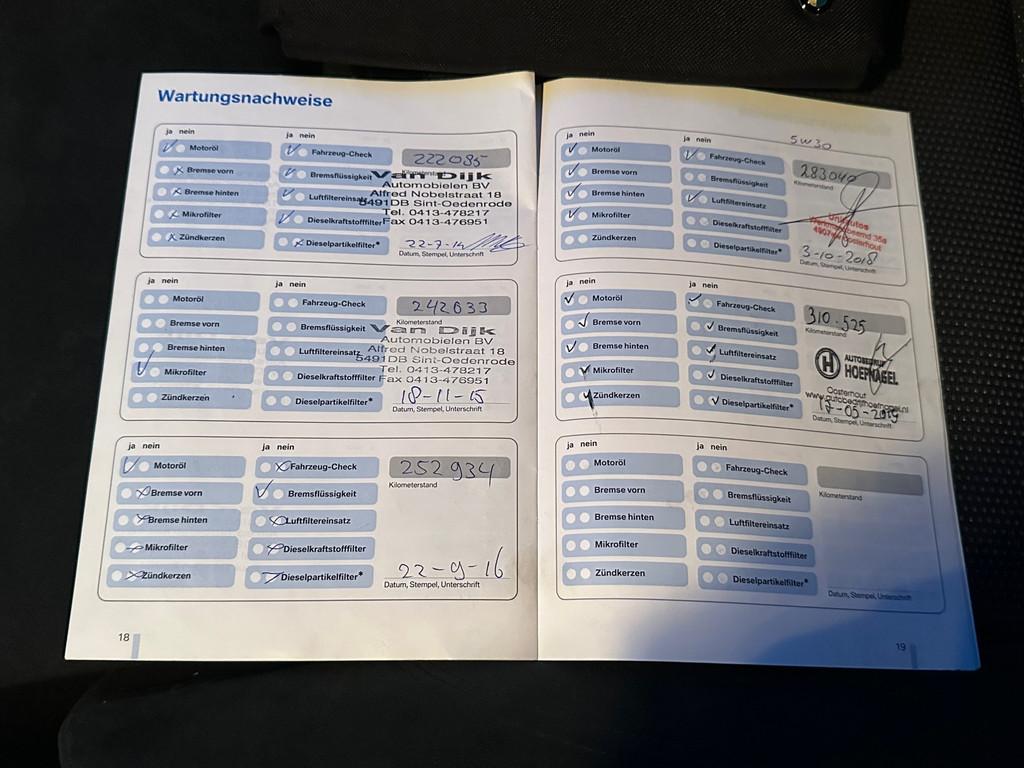 Wartungsnachweise
ja nein
ja nein
Motoröl
Fahrzeug-Check
222085
Bremse vorn
Bremsflüssigkeit
Van Dijk
Automobielen BV
Bremse hinten
Luftfiltereinsatz
Alfred Nobelstraat 18
5491DB Sint-Oedenrode
Mikrofilter
Dieselkraftstofffilter
Tel. 0413-478217
Fax 0413-476951
Zündkerzen
Dieselpartikelfilter*
Datum, Stempel, Unterschrift
ja nein
ja nein
Motoröl
Fahrzeug-Check
242633
Kilometerstand
Bremse vorn
Bremsflüssigkeit
Van Dijk
Automobielen BV
Bremse hinten
Luftfiltereinsatz
Alfred Nobelstraat 18
5491DB Sint-Oedenrode
Mikrofilter
Dieselkraftstofffilter
Tel. 0413-478217
Fax 0413-476951
Zündkerzen
Dieselpartikelfilter*
18-11-15
Datum, Stempel, Unterschrift
ja nein
ja nein
Motoröl
Fahrzeug-Check
252934
Kilometerstand
Bremse vorn
Bremsflüssigkeit
Bremse hinten
Luftfiltereinsatz
Mikrofilter
Dieselkraftstofffilter
Zündkerzen
Dieselpartikelfilter*
22-9-16
Datum, Stempel, Unterschrift
18
5W30
ja nein
ja nein
Motoröl
Fahrzeug-Check
283040
Kilometerstand
Bremse vorn
Bremsflüssigkeit
Bremse hinten
Luftfiltereinsatz
Mikrofilter
Dieselkraftstofffilter
Zündkerzen
Dieselpartikelfilter*
3-10-2018
Datum, Stempel, Unterschrift
ja nein
ja nein
Motoröl
Fahrzeug-Check
310.525
Kilometerstand
Bremse vorn
Bremsflüssigkeit
Bremse hinten
Luftfiltereinsatz
H
HOEFNAGEL
Mikrofilter
Dieselkraftstofffilter
Oosterhout
Zündkerzen
Dieselpartikelfilter*
17-05-2019
Datum, Stempel, Unterschrift
ja nein
ja nein
Motoröl
Fahrzeug-Check
Kilometerstand
Bremse vorn
Bremsflüssigkeit
Bremse hinten
Luftfiltereinsatz
Mikrofilter
Dieselkraftstofffilter
Zündkerzen
Dieselpartikelfilter*
Datum, Stempel, Unterschrift
19